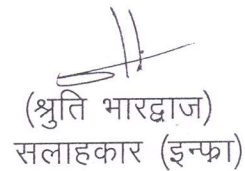 (श्रुति भारद्वाज)
सलाहकार (इन्फ्रा)